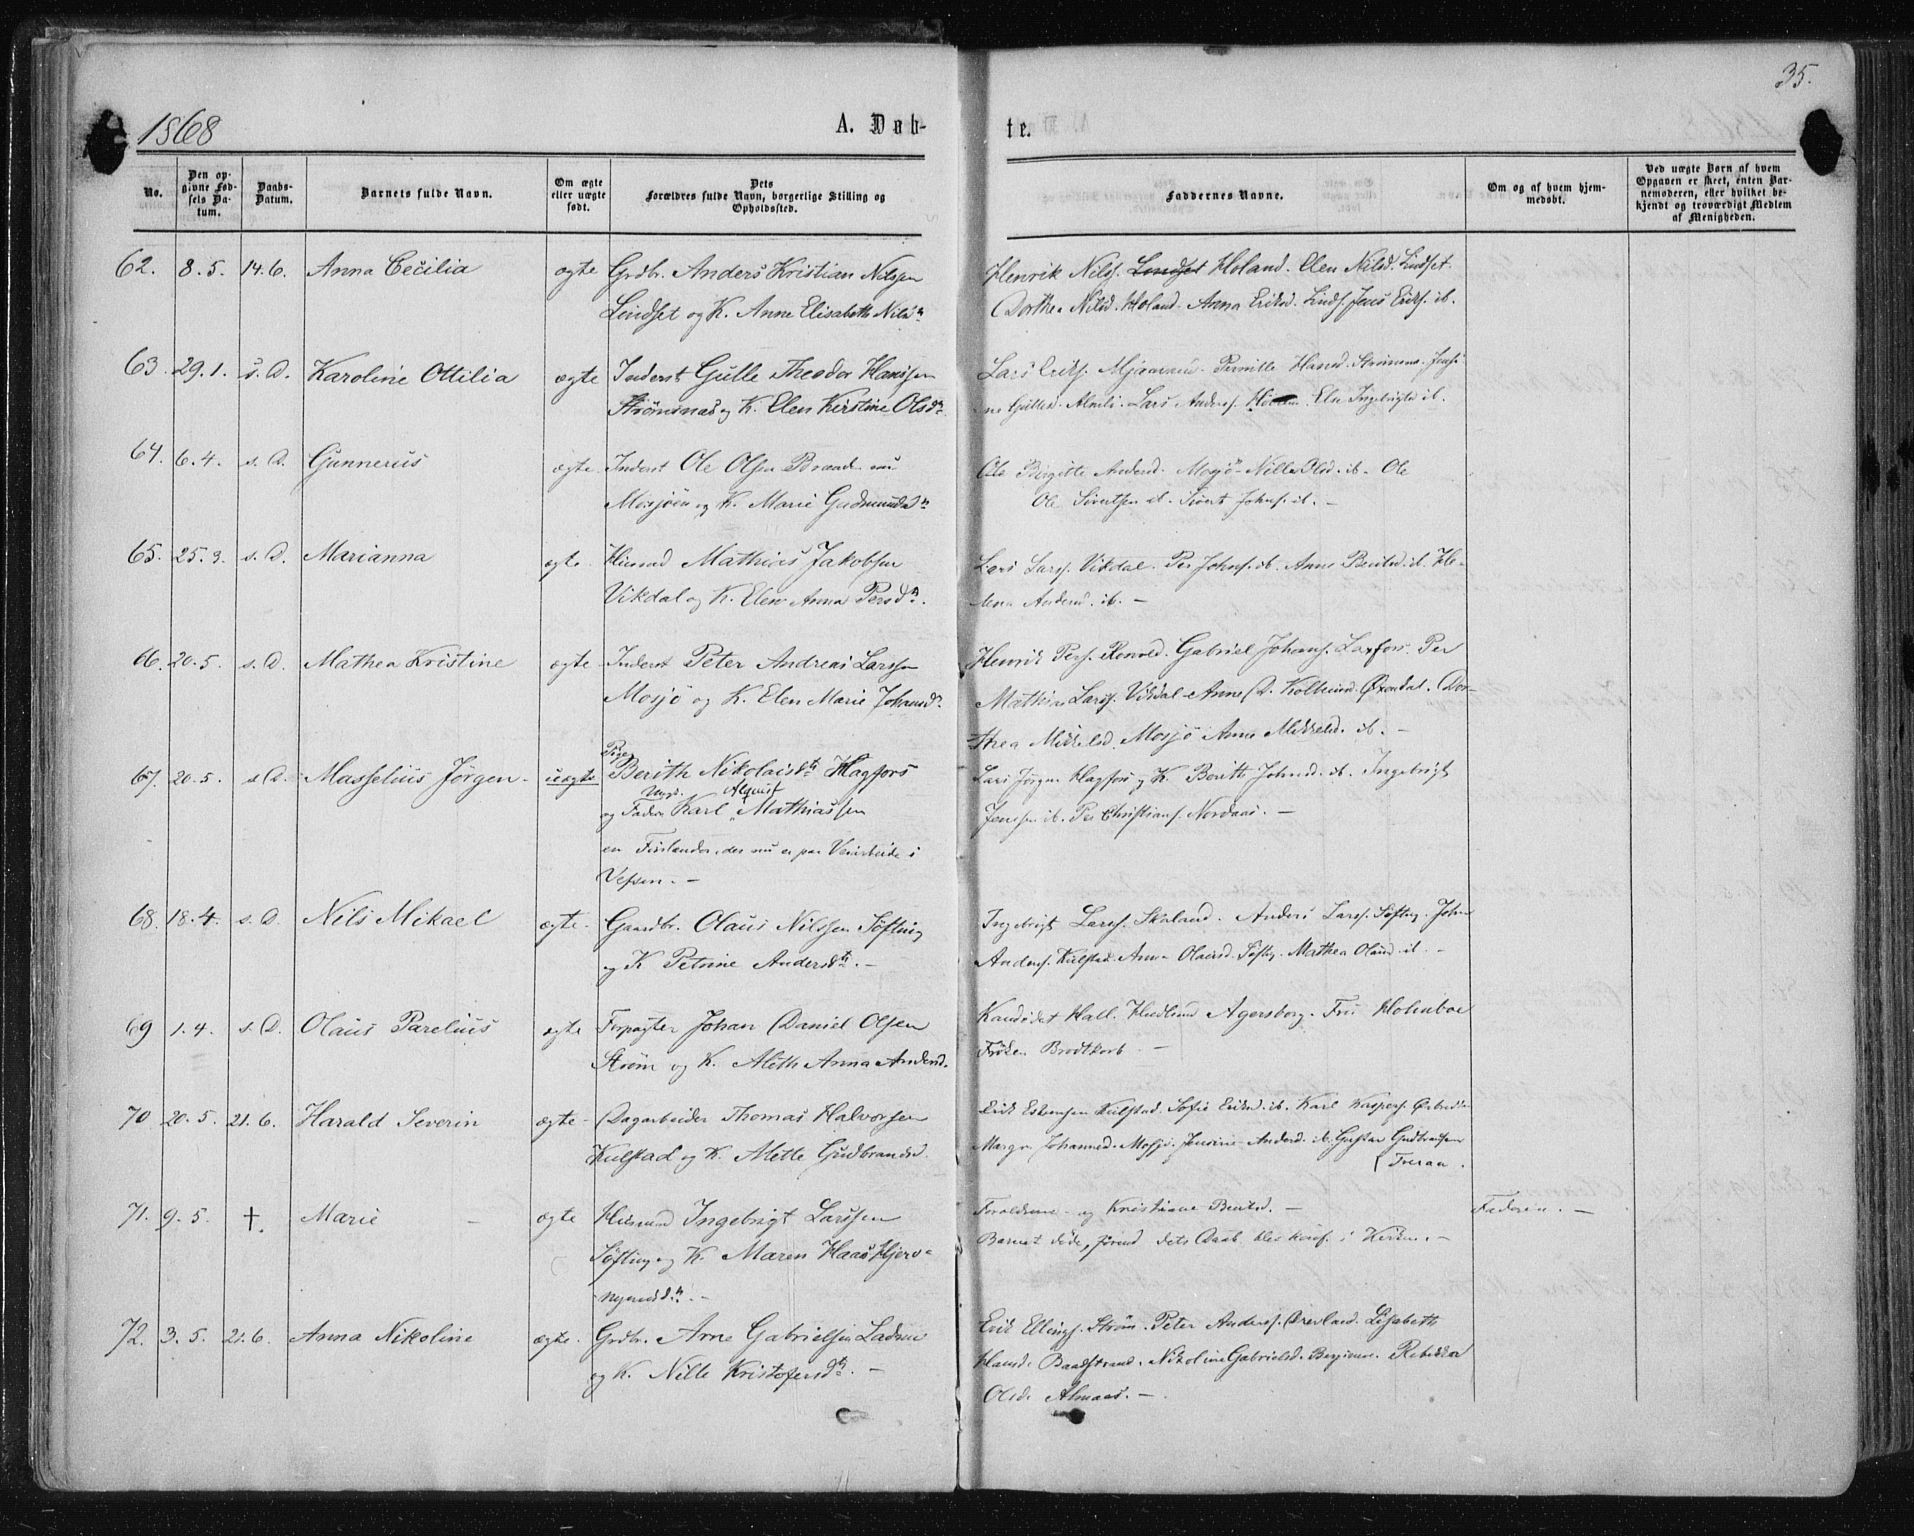 35.
1868
A. Døb-
te.
No.
Den op-
givne Fød-
sels Da-
tum.
Daabs-
Datum.
Barnets fulde Navn.
Om ægte
eller uægte
født.
Dets
Forældres fulde Navn, borgerlige Stilling og
Opholdssted.
Faddernes Navne.
Om og af hvem hjem-
medøbt.
Ved uægte Børn af hvem
Opgaven er skeet, enten Bar-
nemoderen, eller hvilket be-
kjendt og troværdigt Medlem
af Menigheden.
62. 8. 5. 14. 6. Anna Cecilia ægte Grdbr. Anders Kristian Nilssen
Lindset og K. Anne Elisabeth Nilsdtr
Henrik Nilss. Lindset Holand. Elen Nilsd. Lindset.
Dorthea Nilsd. Holand. Anna Eriksd. Linds. Jens Eriks. ib.
63. 29. 1. s. D. Karoline Ottilia ægte Inderst Gulle Theodor Hanssen
Strømsnæs og K. Elen Kirstine Olsdtr
Lars Eriks. Pernille Hansd. Strømsnæs. Jensi-
ne Gullesd. Almli. Lars Anders. Elen Ingebrigtsd. ib.
64. 6. 4. s. D. Gunnerus ægte. Inderst Ole Olsen Brand nu
Mosjøen og K. Marie Gudmundsdtr
Birgitte Andersd. Mosjø. Nille Olsd. ib. Ole
Ole Sivertsen ib. Sivert Johns. ib. -
65. 25. 3. s. D. Marianna ægte. Husmd Mathias Jakobsen
Vikdal og K. Elen Anna Persdtr.
Lars Larss. Vikdal. Per Johns. ib. Anne Bentsd. ib. He-
lena Andersd. ib. -
66. 20. 5. s. D. Mathea Kristine ægte. Inderst Peter Andreas Larssen
Mosjø og K. Elen Marie Johansdtr
Henrik Pers. Gabriel Johans. Laxfors. Per
Mathias Larss. Vikdal. Anne D. Kolbeind. Øxendal. Dor-
thea Mikkelsd. Mosjø Anne Mikkelsd. ib. -
67. 20. 5. s. D. Masselius Jørgen - uægte Pige Berith Nikolaisdtr Hagfors
og Fader Ungk. Karl Alquist Mathiassen
en Finlænder, der nu er paa Veiarbeide i
Vefsen. -
Lars Jørgen Hagfors og K. Berith Johnsd. ib. Ingebrigt
Jenssen ib. Per Christians. Nordaas. -
68. 18. 4. s. D. Nils Mikael ægte. Gaardbr. Olaus Nilssen Søfting
og K Petrine Andersdtr. -
Ingebrigt Larss. Skaland. Anders Larss. Søfting. John
Anders. Kulstad. Anne Olausd. Søftg. Mathea Olausd. ib. -
69 1. 4. s. D. Olaus Parelius ægte Forpagter Johan Daniel Olsen
Strøm og K. Aleth Anna Andersd.
Kandidat Hall. Agersborg. Fru Holmboe
Frøken Brodtkorb. -
70 20. 5. 21. 6. Harald Severin ægte - Dagarbeider Thomas Halvorsen
Kulstad og K. Mette Gudbrandsd.
Erik Kulstad. Sofie Eriksd. ib. Karl Kaspers.
Margr. Johannesd. Mosjø. Jensine Andersd. ib. Gustav
71. 9. 5. †. Marie - ægte Husmd Ingebrigt Larssen
Søfting og K. Maren Haas Hjero-
nymusdtr. -
Forældrene - og Kristiane Bentsd. -
Barnet døde, førend dets Daab blev konf. i Kirken. -
Faderen. -
72. 3. 5. 21. 6. Anna Nikoline ægte. Grdbr. Arne Gabrielsen
og K. Nille Kristofersdtr. -
Erik Ellings. Strøm. Peter Anders. Lisabeth
Hansd. Baadstrand. Nikoline Gabrielsd. Rebekka
Olsd. Almaas. -